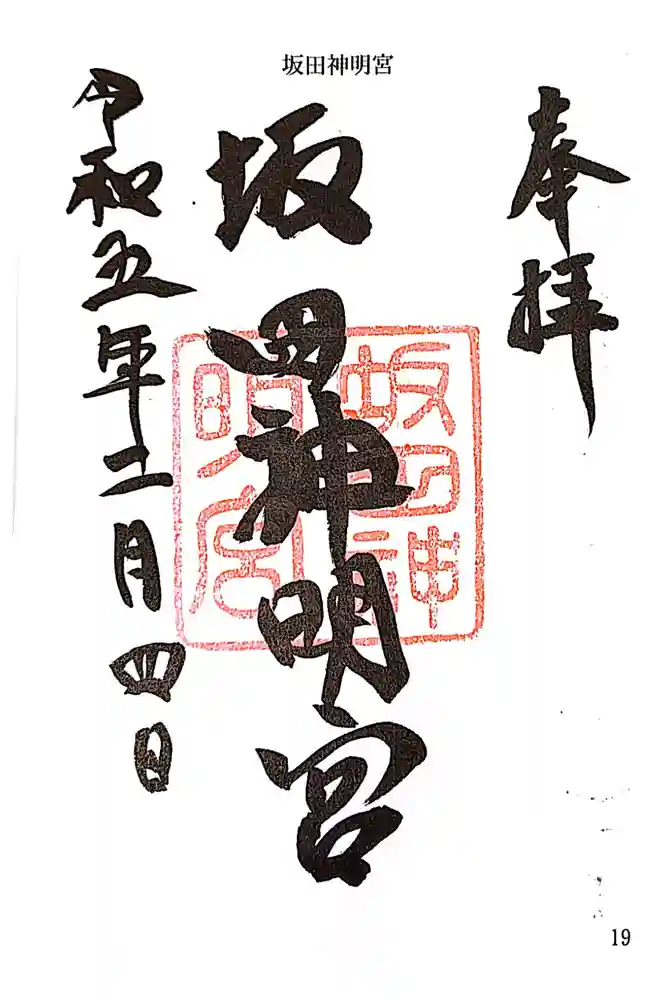 坂田神明宮
奉拝
坂田神明宮
坂田神
明宮
令和五年二月四日
19